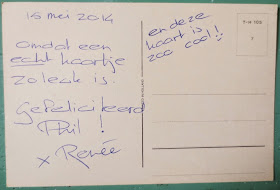 15 mei 2014
omdat een
echt kaartje
zo leuk is.
Gefeliciteerd
Phil!
x Renée
en deze
kaart is
zoo cool!!